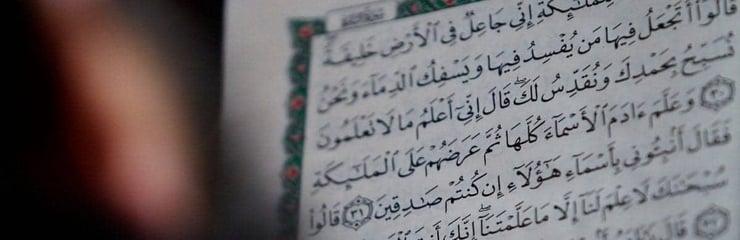 لِلْمَلَٰٓئِكَةِ إِنِّى جَاعِلٌ فِى ٱلْأَرْضِ خَلِيفَةً
قَالُوٓا۟ أَتَجْعَلُ فِيهَا مَن يُفْسِدُ فِيهَا وَيَسْفِكُ ٱلدِّمَآءَ وَنَحْنُ
نُسَبِّحُ بِحَمْدِكَ وَنُقَدِّسُ لَكَ ۖ قَالَ إِنِّىٓ أَعْلَمُ مَا لَا تَعْلَمُونَ
٣٠ وَعَلَّمَ ءَادَمَ ٱلْأَسْمَآءَ كُلَّهَا ثُمَّ عَرَضَهُمْ عَلَى ٱلْمَلَٰٓئِكَةِ
فَقَالَ أَنۢبِـُٔونِى بِأَسْمَآءِ هَٰٓؤُلَآءِ إِن كُنتُمْ صَٰدِقِينَ ٣١ قَالُوا۟
سُبْحَٰنَكَ لَا عِلْمَ لَنَآ إِلَّا مَا عَلَّمْتَنَآ ۖ إِنَّكَ أَنتَ
قَالَ